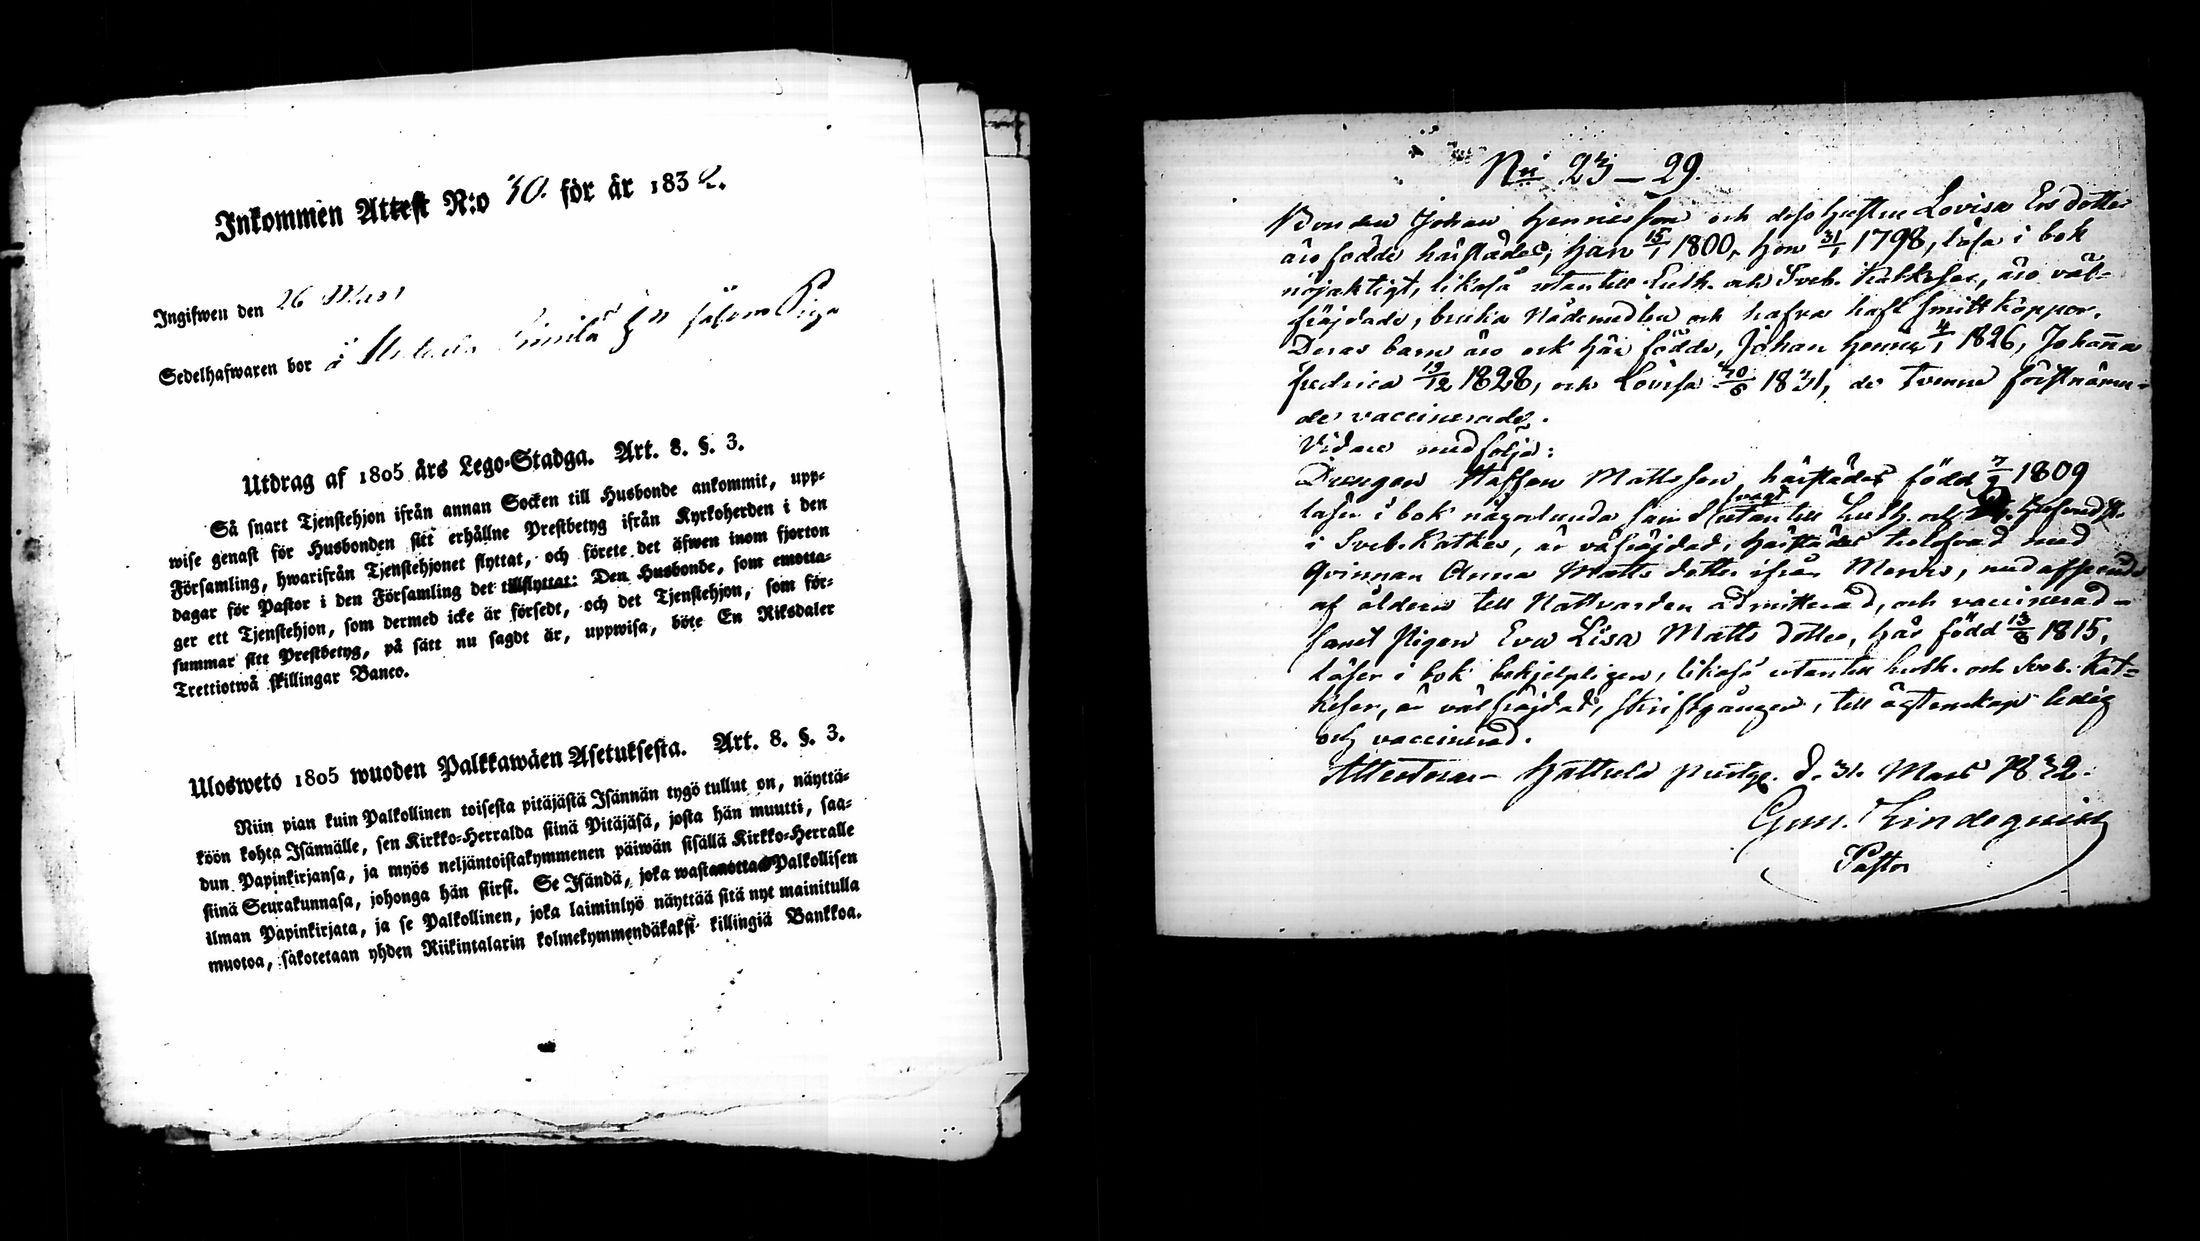 Inkommen Attest N:o 30. för år 1832.
Ingifwen den 26 Mars
Sedelhafwaren bor å såsom Piga
Utdrag af 1805 års Lego-Stadga. Art. 8. §. 3.
Så snart Tjenstehjon ifrån annan Socken till Husbonde ankommit, upp-
wise genast för Husbonden sitt erhållne Prestbetyg ifrån Kyrkoherden i den
Församling, hwarifrån Tjenstehjonet flyttat, och förete det äfwen inom fjorton
dagar för Pastor i den Församling det tillflyttat: Den Husbonde, som emotta-
ger ett Tjenstehjon, som dermed icke är försedt, och det Tjenstehjon, som för-
summar sitt Prestbetyg, på sätt nu sagdt är, uppwisa, böte En Riksdaler
Trettiotwå skillingar Banco.
Ulosweto 1805 wuoden Palkkawäen Asetuksesta. Art. 8. §. 3.
Niin pian kuin Palkollinen toisesta pitäjästä Isännän tygö tullut on, näyttä-
köön kohta Isännälle, sen Kirkko-Herralda siinä Pitäjäsä, josta hän muutti, saa-
dun Papinkirjansa, ja myös neljäntoistakymmenen päiwän sisällä Kirkko-Herralle
siinä Seurakunnasa, johonga hän siirsi. Se Isändä, joka wastanottaa Palkollisen
ilman Papinkirjata, ja se Palkollinen, joka laiminlyö näyttää sitä nyt mainitulla
muotoa, sakotetaan yhden Riikintalarin kolmekymmendäkaksi killingiä Bankkoa.
N:ri 23–29.
Bonden Johan Hennersson och dess hustru Lovisa Ersdotter
äro födde härstädes, han 15/1 1800, hon 31/1 1798, läsa i bok
nöjaktigt, likaså utantill Luth. och Sveb. Katkeser, äro väl-
fräjdade, bruka Nådemedlen och hafva haft smittkoppor.
Deras barn äro ock här födde, Johan Henric 4/1 1826, Johanna
fredrica 19/12 1828, och Lovisa 1831, de tvenne förstnämn-
de vaccinerade.
Vidare medfölja:
Drengen Staffan Mattsson, härstädes född 1809
läser i bok någorlunda samt svagt utantill Luth. och
i Sveb. Katkes, är välfräjdad, härstädes trolofvad med
qvinnan Anna Matts dotter ifrån
af åldern till Nattvarden admitterad, och vaccinerad –
samt pigan Eva Lisa Matts dotter, här född 13/8 1815,
läser i bok behjelpligen, likaså utantill Luth. och Sveb. Kat-
keser, är välfräjdad, skriftgången, till ägtenskap ledig
och vaccinerad.
Attesterar Hattula prestg. d. 31. Mars 1832.
Gust. Lindeqvist
Pastor